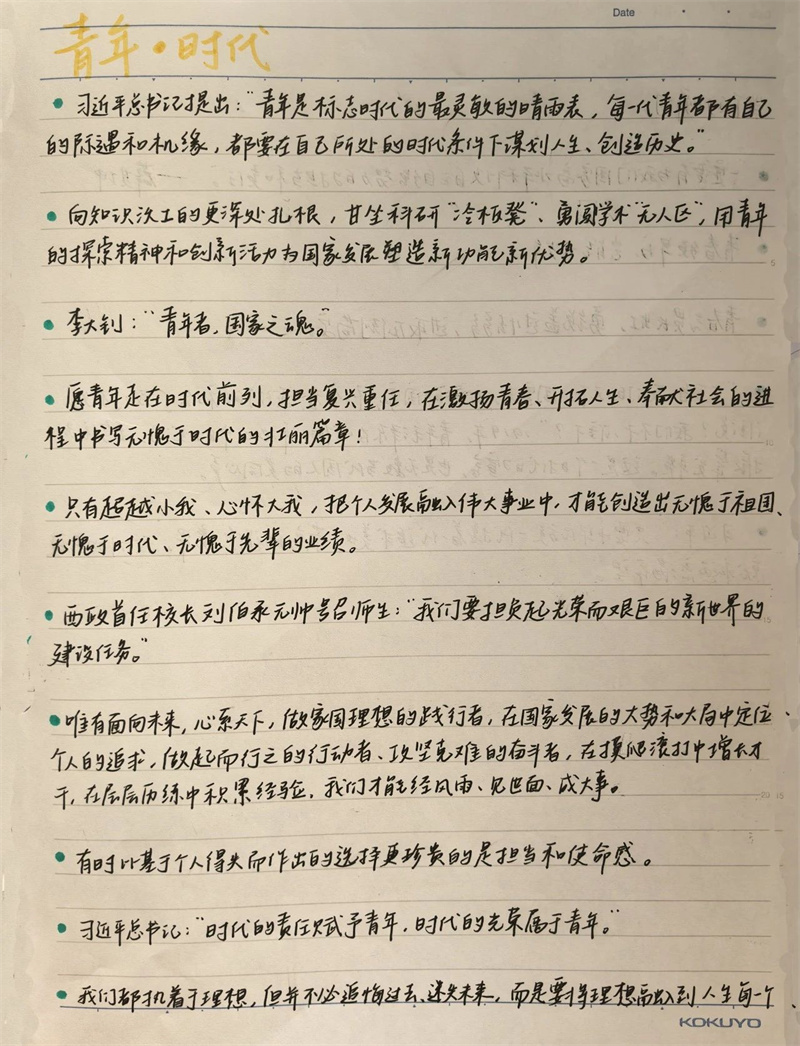 Date
青年·时代
• 习近平总书记提出：“青年是标志时代的最灵敏的晴雨表，每一代青年都有自己
的际遇和机缘，都要在自己所处的时代条件下谋划人生、创造历史。”
• 向知识沃土的更深处扎根，甘坐科研“冷板凳”、勇闯学术“无人区”，用青年
的探索精神和创新活力为国家发展塑造新功能新优势。
• 李大钊：“青年者，国家之魂。”
• 愿青年走在时代前列，担当复兴重任，在激扬青春、开拓人生、奉献社会的进
程中书写无愧于时代的壮丽篇章！
• 只有超越小我、心怀大我，把个人发展融入伟大事业中，才能创造出无愧于祖国、
无愧于时代、无愧于先辈的业绩。
• 西政首任校长刘伯承元帅号召师生：“我们要担负起光荣而艰巨的新世界的
建设任务。”
• 唯有面向未来，心系天下，做家国理想的践行者，在国家发展的大势和大局中定位
个人的追求，做起而行之的行动者、攻坚克难的奋斗者，在摸爬滚打中增长才
干，在层层历练中积累经验，我们才能经风雨、见世面、成大事。
• 有时比基于个人得失而作出的选择更珍贵的是担当和使命感。
• 习近平总书记：“时代的责任赋予青年，时代的光荣属于青年。”
• 我们都执着于理想，但并不必追悔过去、迷失未来，而是要将理想融入到人生每一个
KOKUYO